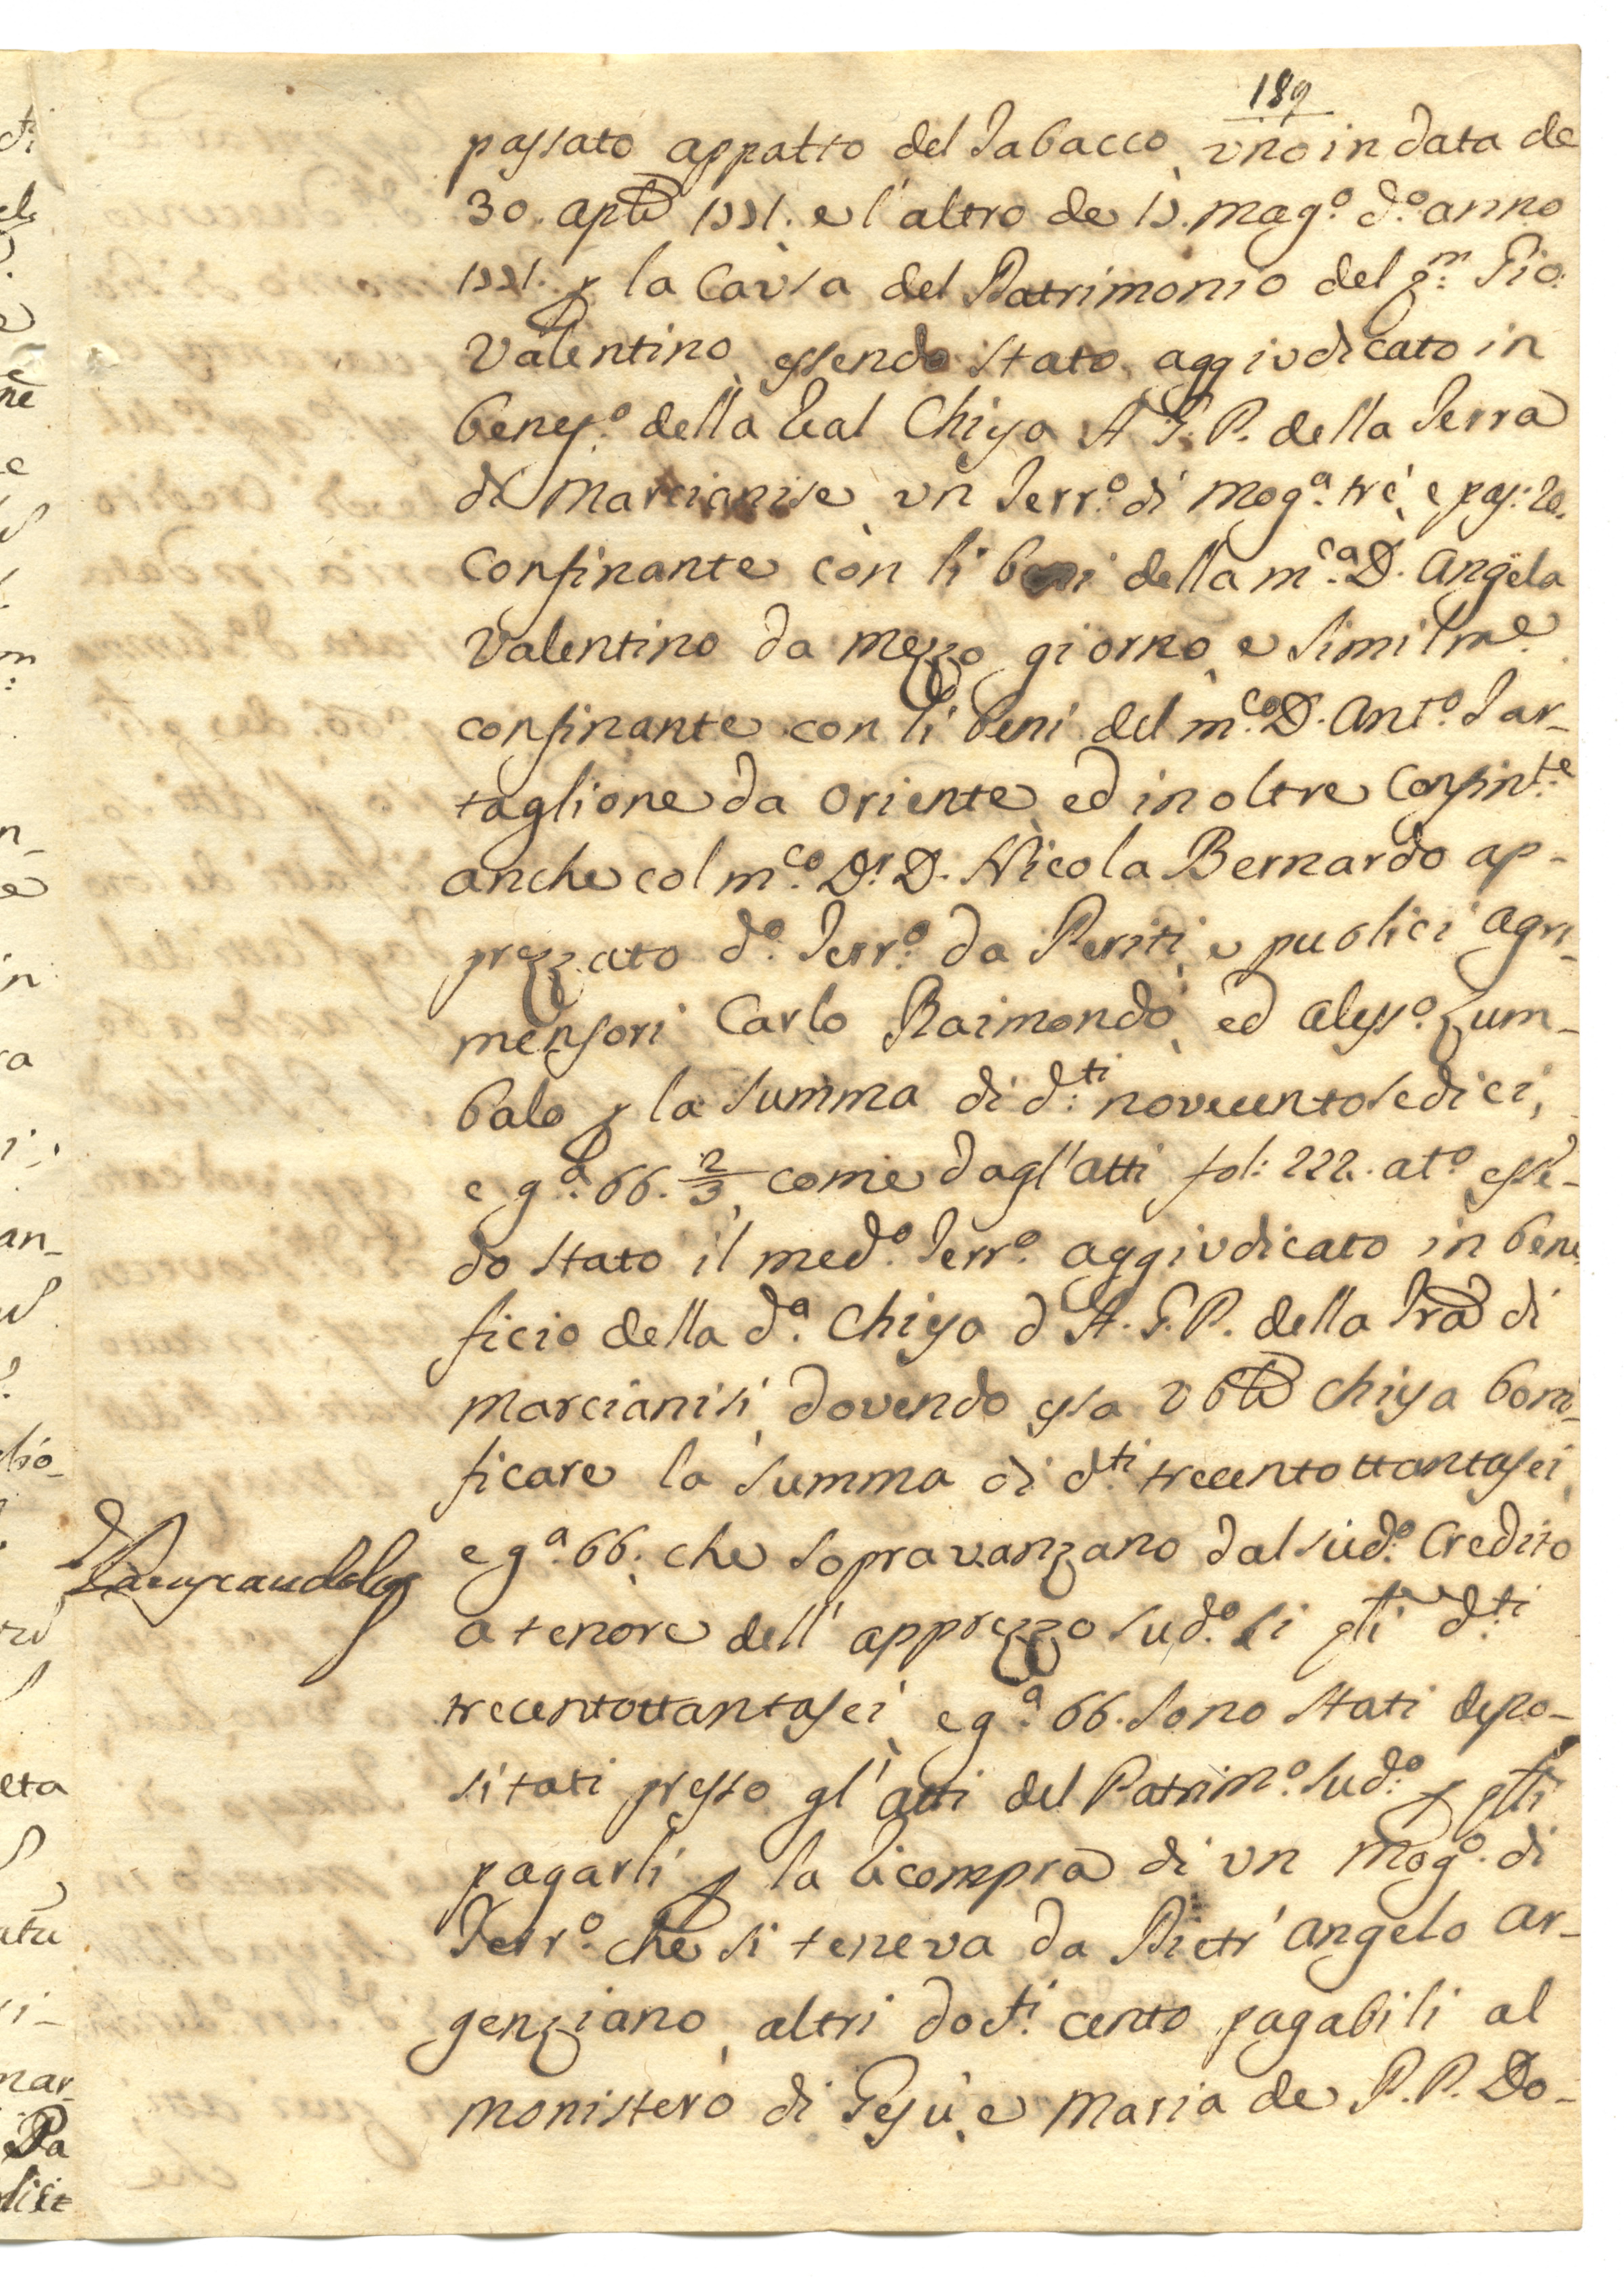 189
passato appatto del Tabacco, vno in data de
30. aple 1771. e l'altro de 17. mag.º d.º anno
1771. p la Causa del Patrimonio del q.m Gio:
Valentino, essendo stato aggiudicato in
benef.º della Real Chiesa A. G. P. della Terra
di Marcianise, vn Terr.º di mog.a tre, e pas: 20.
Confinante con li beni della m.ca D. Angela
Valentino da mezzo giorno, e similm.e
confinante con li beni del m.co D. Ant.º Tar-
taglione da Oriente, ed inoltre Confin.te
anche col m.co D.r D. Nicola Bernardo ap-
prezzato d.º Terr.º da Periti, e publici agri-
mensori Carlo Raimondo, ed Aless.º Zum-
balo p la summa di d.ti novecentosedici,
e g.a 66. 2/3, come dagl'atti fol: 222. at.º essē-
do stato il med.º Terr.º aggiudicato in bene
ficio della d.a Chiesa d A. G. P. della Tra di
Marcianisi, dovendo essa vble Chiesa boni-
ficare la summa di d.ti trecentottantasei,
e g.a 66. che sopravanzano dal sud.º Credito
a tenore dell'apprezzo sud.º li qti d.ti
trecentottantasei, e g.a 66. sono stati depo-
sitati presso gl'atti del Patrim.º sud.º p qlli
pagarli p la ricompra di vn mog.º di
Terr.º che si teneva da Pietr'angelo Ar-
genziano, altri do.ti cento pagabili al
monistero di Gesù, e Maria de P.P. Do-